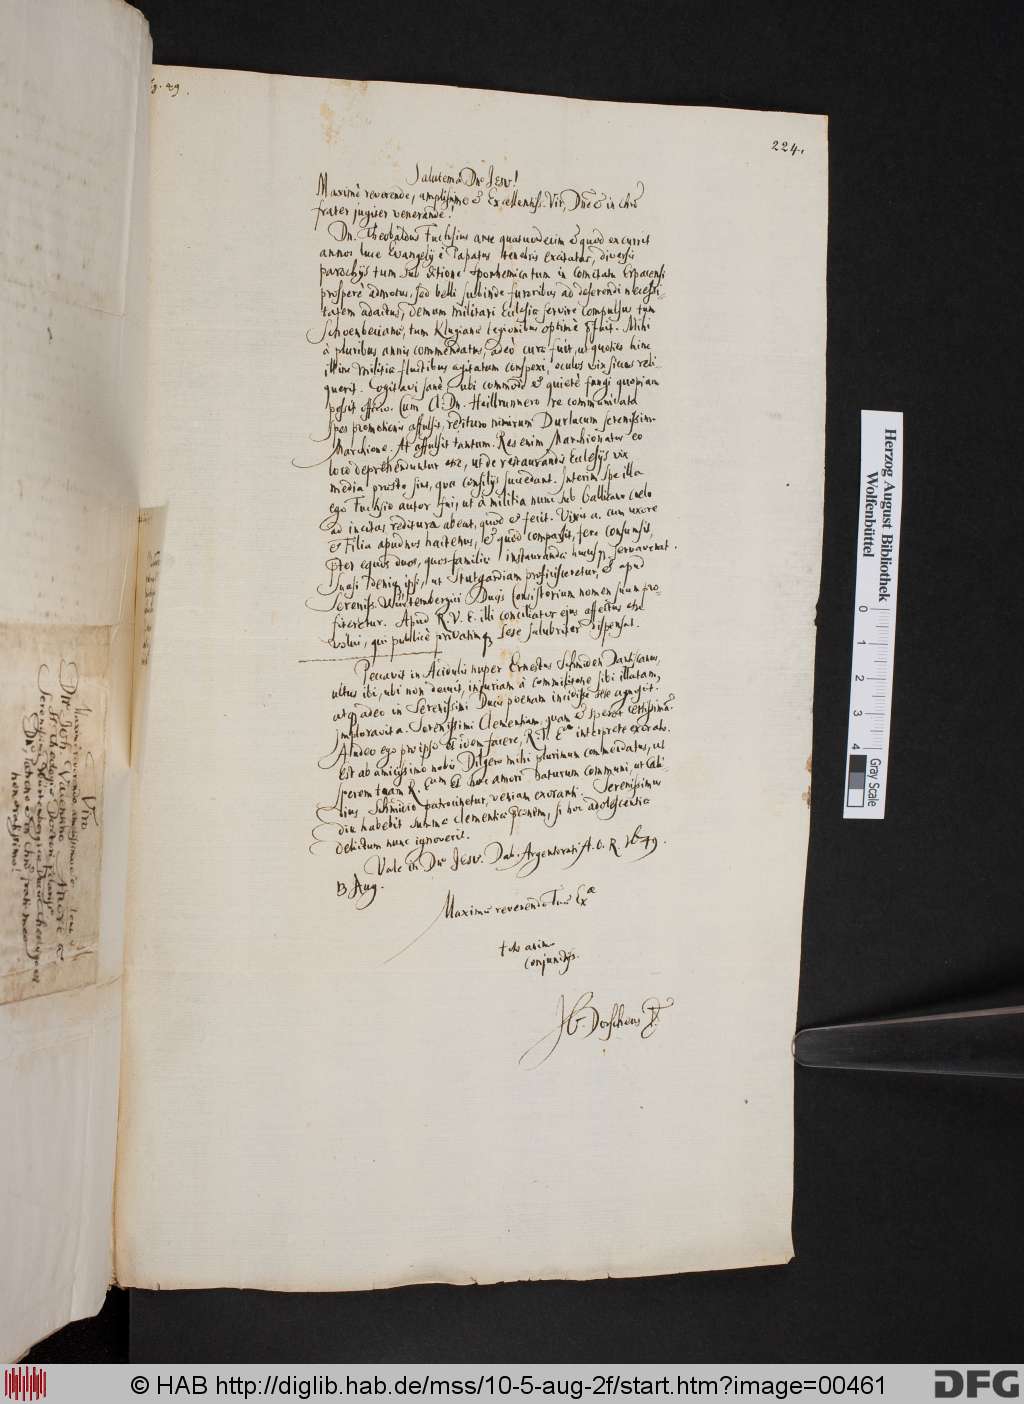 224.
Salutem à Dno Jesu!
Maximè reverende, amplissime & Excellentiss. Vir, Dne & in chro
frater jugiter venerande!
Dn. Theobaldus Fuchsius ante quatuordecim & quod excurrit
annos luce Evangelij è Papatus tenebris excitatus, diversis
parochijs tum sub ditione tum in Comitatu Erpacensi
prosperè admotus, sed belli subinde furoribus ad deserendi necessi-
tatem adactus, demum militari Ecclesiæ servire compulsus tum
tum Klugianæ legionibus optimè pfuit. Mihi
à pluribus annis commendatus, adeò curæ fuit, ut quoties hinc
illinc militiæ fluctibus agitatum conspexi, oculus siccus reli-
querit. Cogitavi sanè, ubi commodè & quietè fungi quopiam
possit officio. Cum Cl. Dn. Heilbrunnero re communicata
spes promotionis affulsit, redituro nimirum Durlacum serenissimo
Marchione. At affulsit tantum. Res enim Marchionatus eo
loco deprehenduntur esse, ut de restaurandis Ecclesijs vix
media præsto sint, quæ consilijs succedant. Interim spe illa
ego Fuchsio autor fui, ut à militia nunc sub Gallicano coelo
ad incitas reditura abeat, quod & fecit. Vixit a. cum uxore
& filia apud nos hactenus, & quod comparsit, fere consumsit,
pter equos duos, quos familiæ instaurandæ servaverat.
Suasi deniq ipsi, ut Stutgardiam proficisceretur, & apud
Sereniss. Würtembergici Ducis Consistorium nomen suum pro-
fiteretur. Apud R.V.E. illi conciliatur ejus affectus esse
volui, qui publicè privatimq sese salubriter dispensat.
Peccavit in Acidulis nuper Ernestus Schmiden Dantiscanus,
ultus ibi, ubi non decuit, injuriam à commilitone sibi illatam,
atq adeo in Serenissimi Ducis poenam incidisse sese agnoscit.
Imploravit a. Serenissimi Clementiam, quam & sperat certissimã.
Audeo ego pro ipso id idem facere, R.T. Eam interprete exorato.
Est ab amicissimo nobis Dilgero mihi plurimum commendatus, ut
sperem tuam R. Eam & hoc amori daturam communi, ut
Schmidio patrocinetur, veniam exoranti. Serenissimus
diu habebit summæ clementiæ pconem, si hoc adolescentiæ
delictum nunc ignoverit.
Vale in Dno Jesu. Dab. Argentorati A. O. R. 1649.
13 Aug.
Maximè reverendæ Tuæ Exæ
toto animo
conjunctiss.
JG. Dorscheus D.
Viro
Dn. Joh. Valentino Andreæ
SS. Theologiæ Doctori
Herzog August Bibliothek
Wolfenbüttel
0 1 2 3 4
Gray Scale
© HAB http://diglib.hab.de/mss/10-5-aug-2f/start.htm?image=00461
DFG